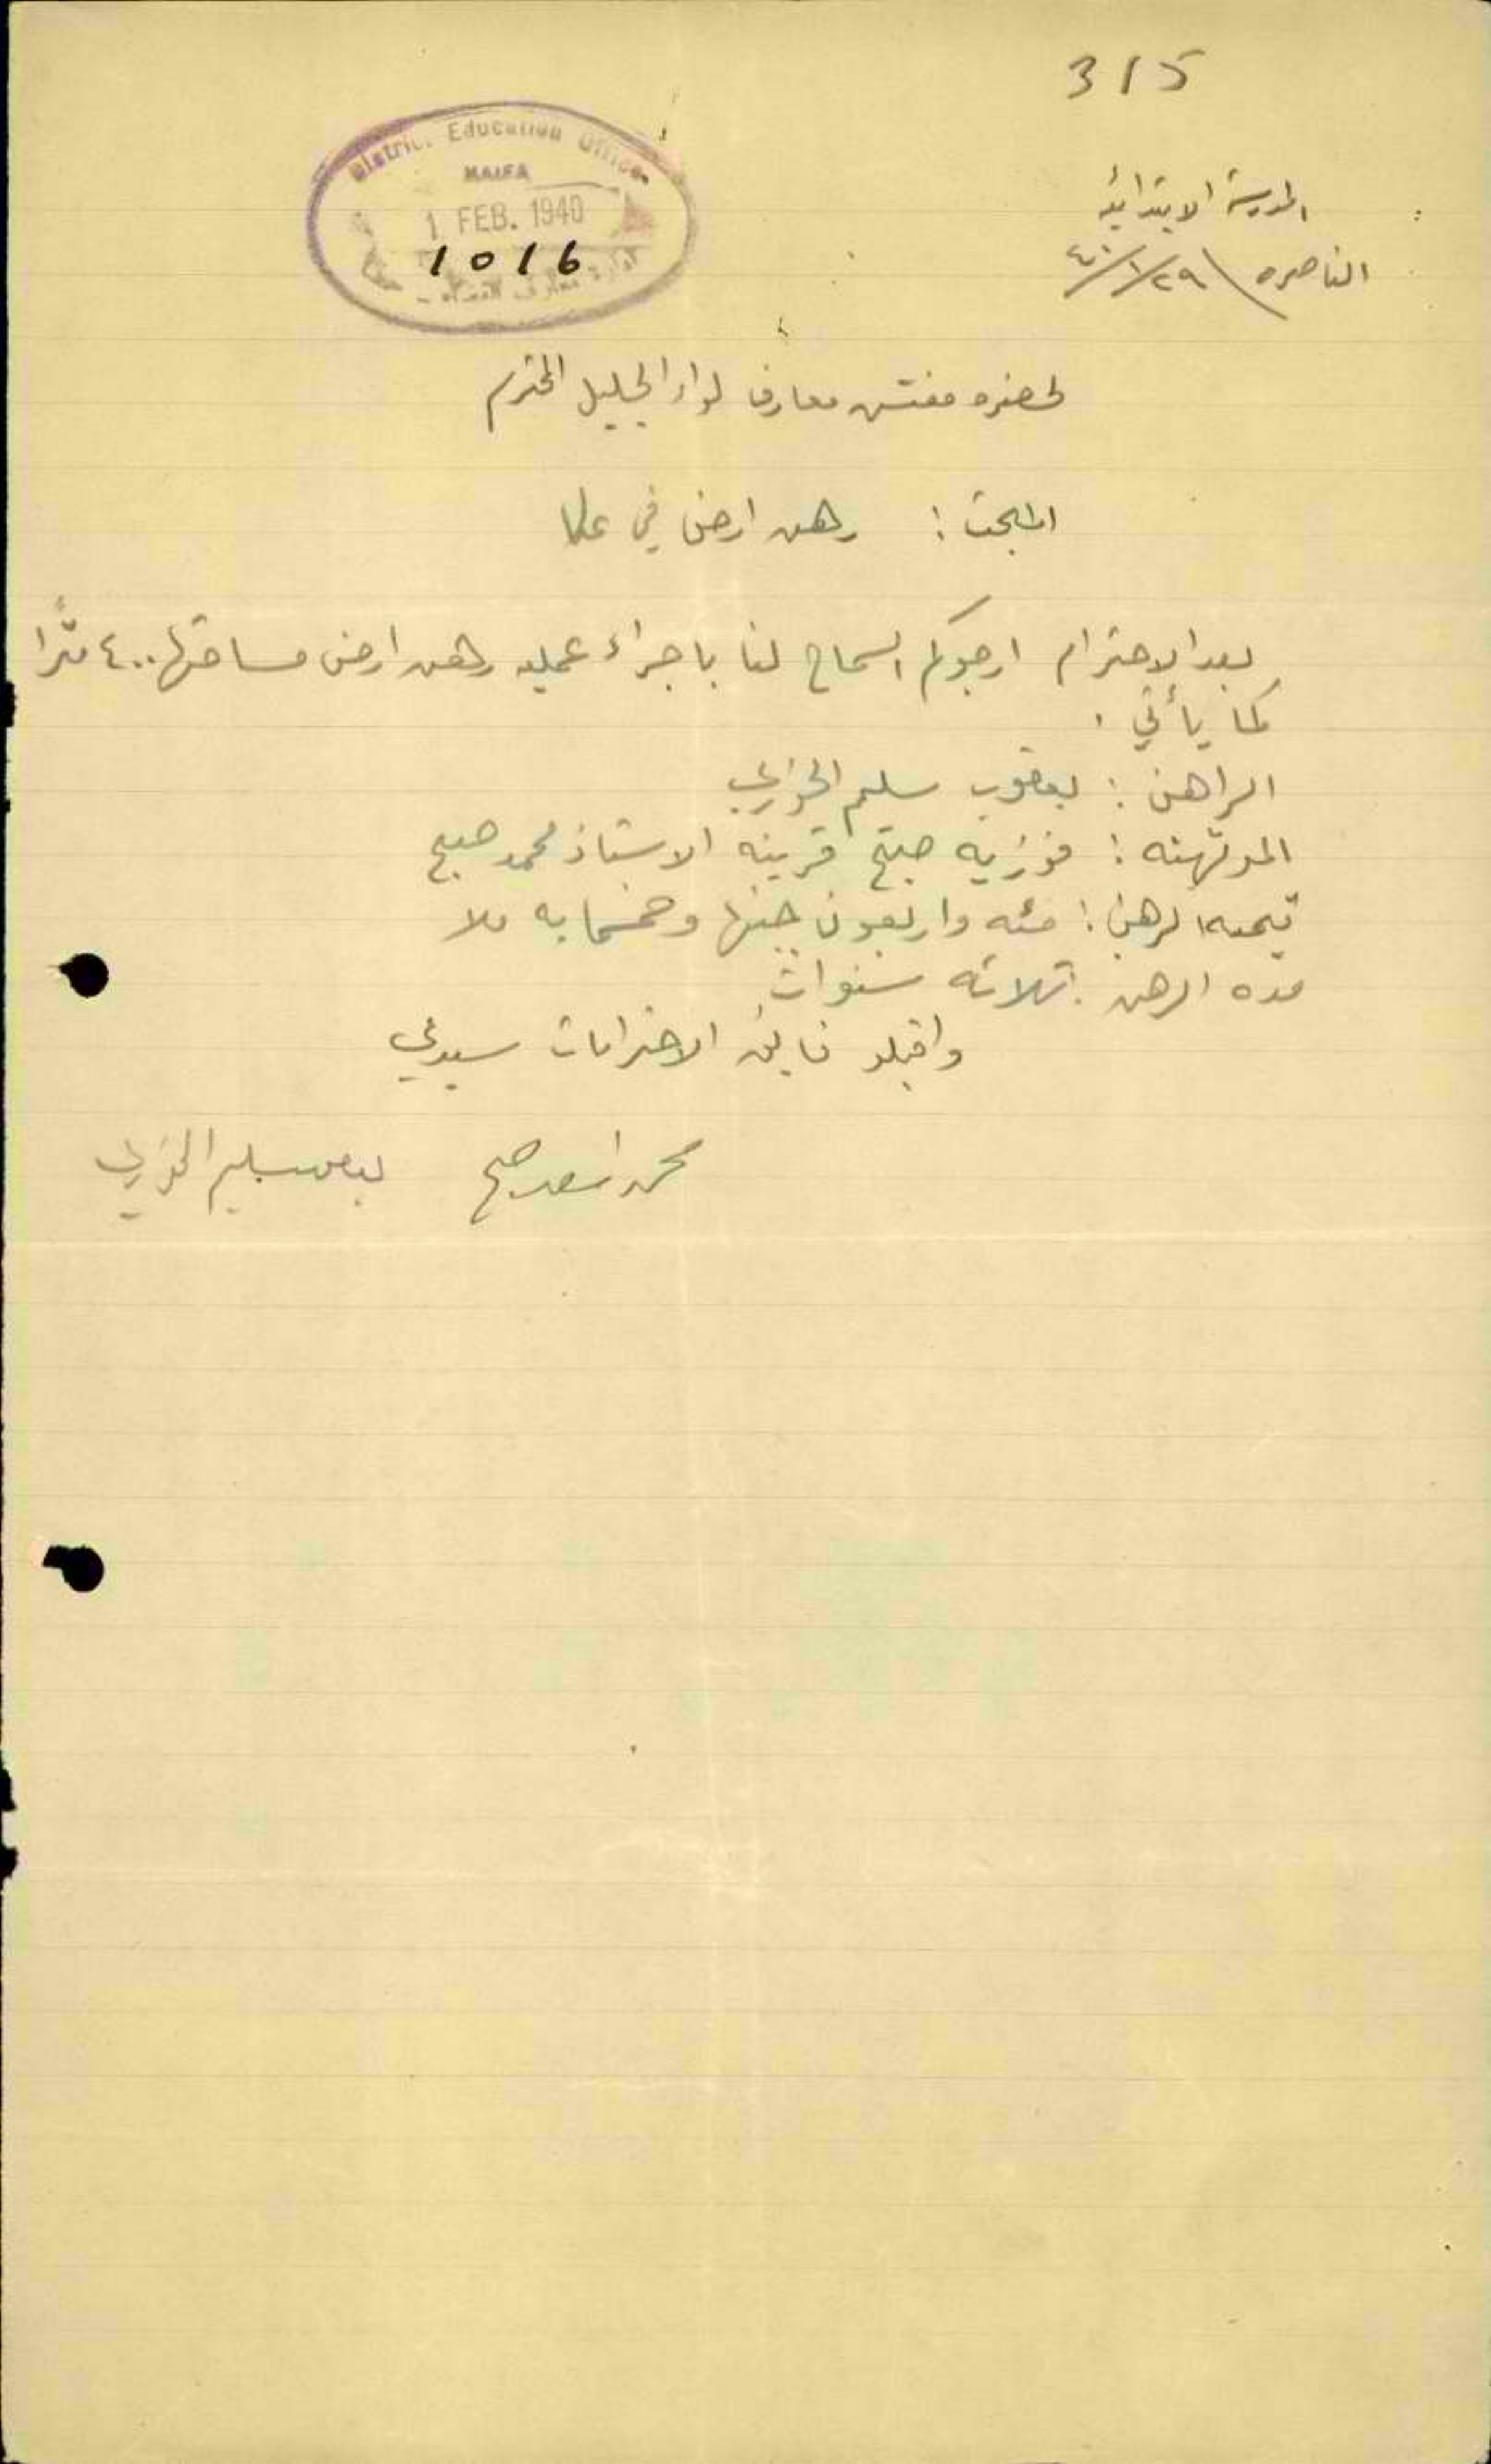 315
District Education Office
HAIFA
1 FEB. 1940
1016
المدرسة الابتدائية
الناصره ٢٩/١/٤٠
لحضره مفتش معارف لواء الجليل المحترم
المبحث : رهن ارض في عكا
بعد الاحترام ارجوكم السماح لنا باجراء عمليه رهن ارض مساحتها ٤٠٠ مترًا
كما يأتي :
الراهن : يعقوب سليم الخوري
المرتهنه : فوزيه صبح قرينه الاستاذ محمد صبح
قيمه الرهن : مئه واربعون جنيها وخمسمايه ملا
مده الرهن : ثلاثه سنوات
واقبلو فايق الاحترامات سيدي
محمد اسعد صبح يعقوب سليم الخوري